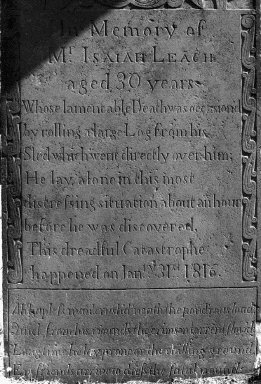 In Memory of
Mr Isaiah Leach
aged 30 years
Whose lamentable Death was occasiond
by rolling a large Log from his
Sled which went directly over him;
He lay, alone in this most
distressing situation about an hour
before he was discovered.
This dreadful Catastrophe
happened on Jany 31st 1816.
man crush'd neath the pond'rous load
from his wounds the